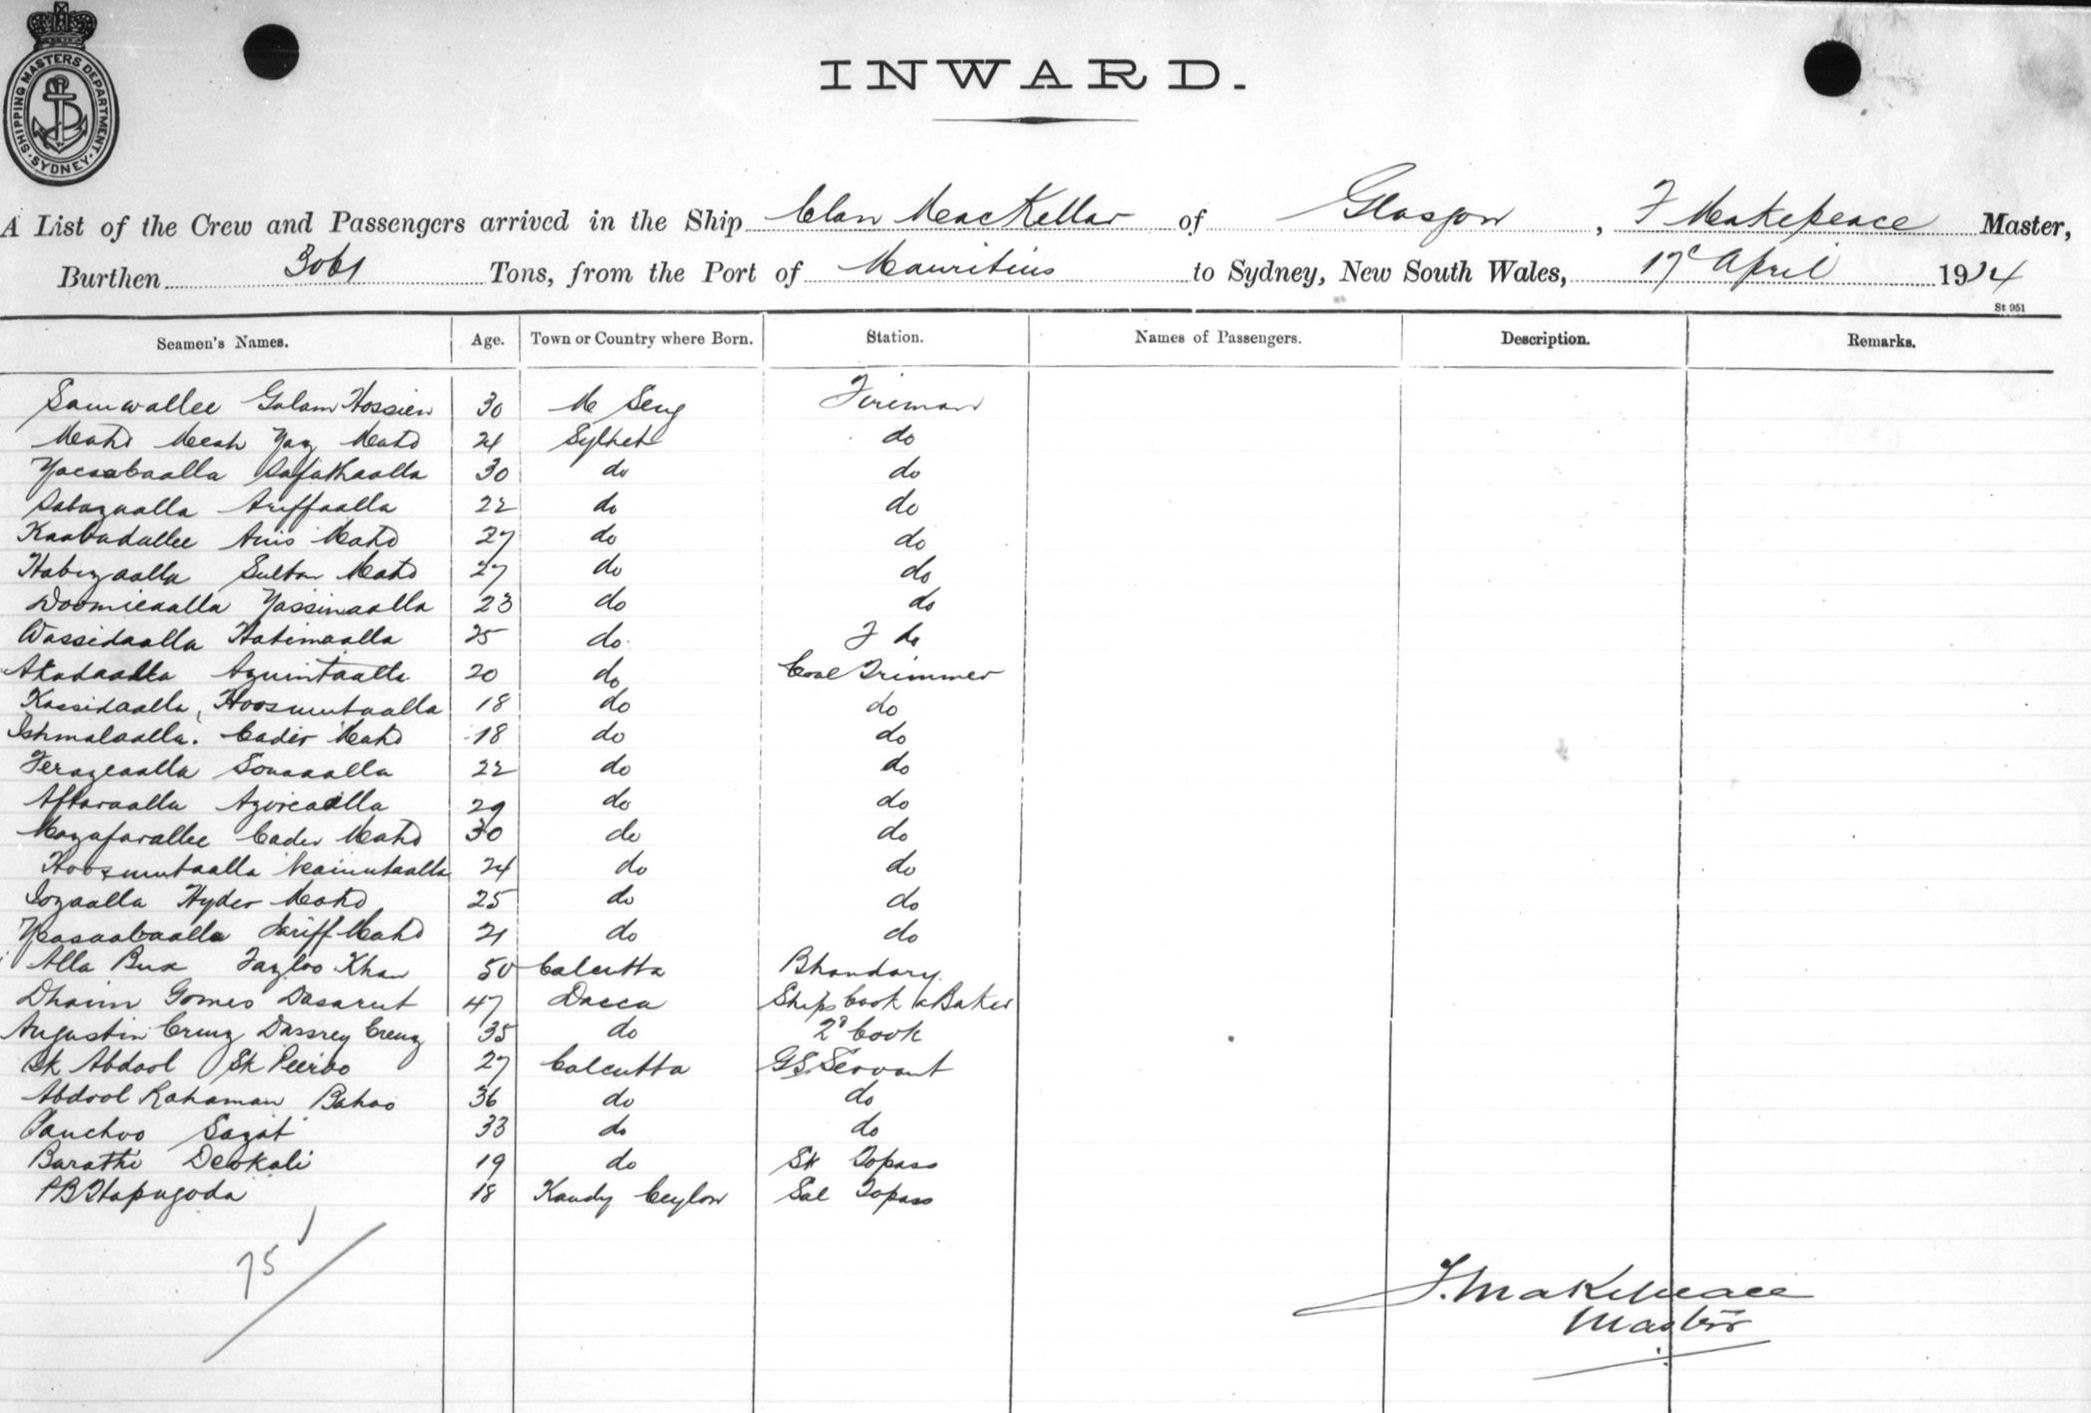 SHIPPING MASTERS DEPARTMENT. SYDNEY.
INWARD.
A List of the Crew and Passengers arrived in the Ship Clan MacKellar of Glasgow, F Makepeace Master,
Burthen Tons, from the Port of Mauritius to Sydney, New South Wales, 17 April 1914
St 951
Seamen's Names. Age. Town or Country where Born. Station. Names of Passengers. Description. Remarks.
Samwallee Golam Hossien 30 Fireman
Mahd Meah Mahd 24 Sylhet do
Safathaalla 30 do do
Ariffaalla 22 do do
Anis Mahd 27 do do
Habizaalla Sultan Mahd 27 do do
Doomicaalla Yassinaalla 23 do do
Wassidaalla Hatimaalla 25 do
20 do Coal Trimmer
Kassidaalla Hoosmutaalla 18 do do
Ishmalaalla. Cader Mahd 18 do do
Sonaaalla 22 do do
Aftaraalla 29 do do
Mozafarallee Cader Mahd 30 do do
Hoosmutaalla 24 do do
Hyder Mahd 25 do do
Sariff Mahd 21 do do
Alla Bux Fazloo Khan 50 Calcutta Bhandary
Gomes 47 Dacca Ships Cook & Baker
Augustin Cruz Cruz 35 do 2d Cook
Sk Abdool Sk Peeroo 27 Calcutta G.S. Servant
Abdool Rahaman 36 do do
Panchoo 33 do do
Barathi Deokali 19 do Topass
PB Hapugoda 18 Kandy Ceylon Sal Topass
75
F. Makepeace
Master